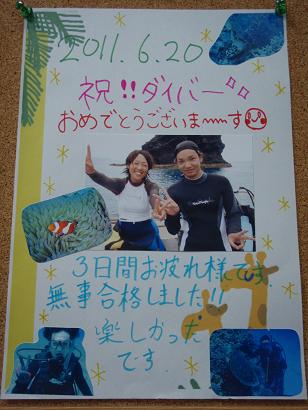 2011.6.20
祝!!ダイバー°°
おめでとうございま〜〜す
3日間お疲れ様です
無事合格しました!!
楽しかった
です